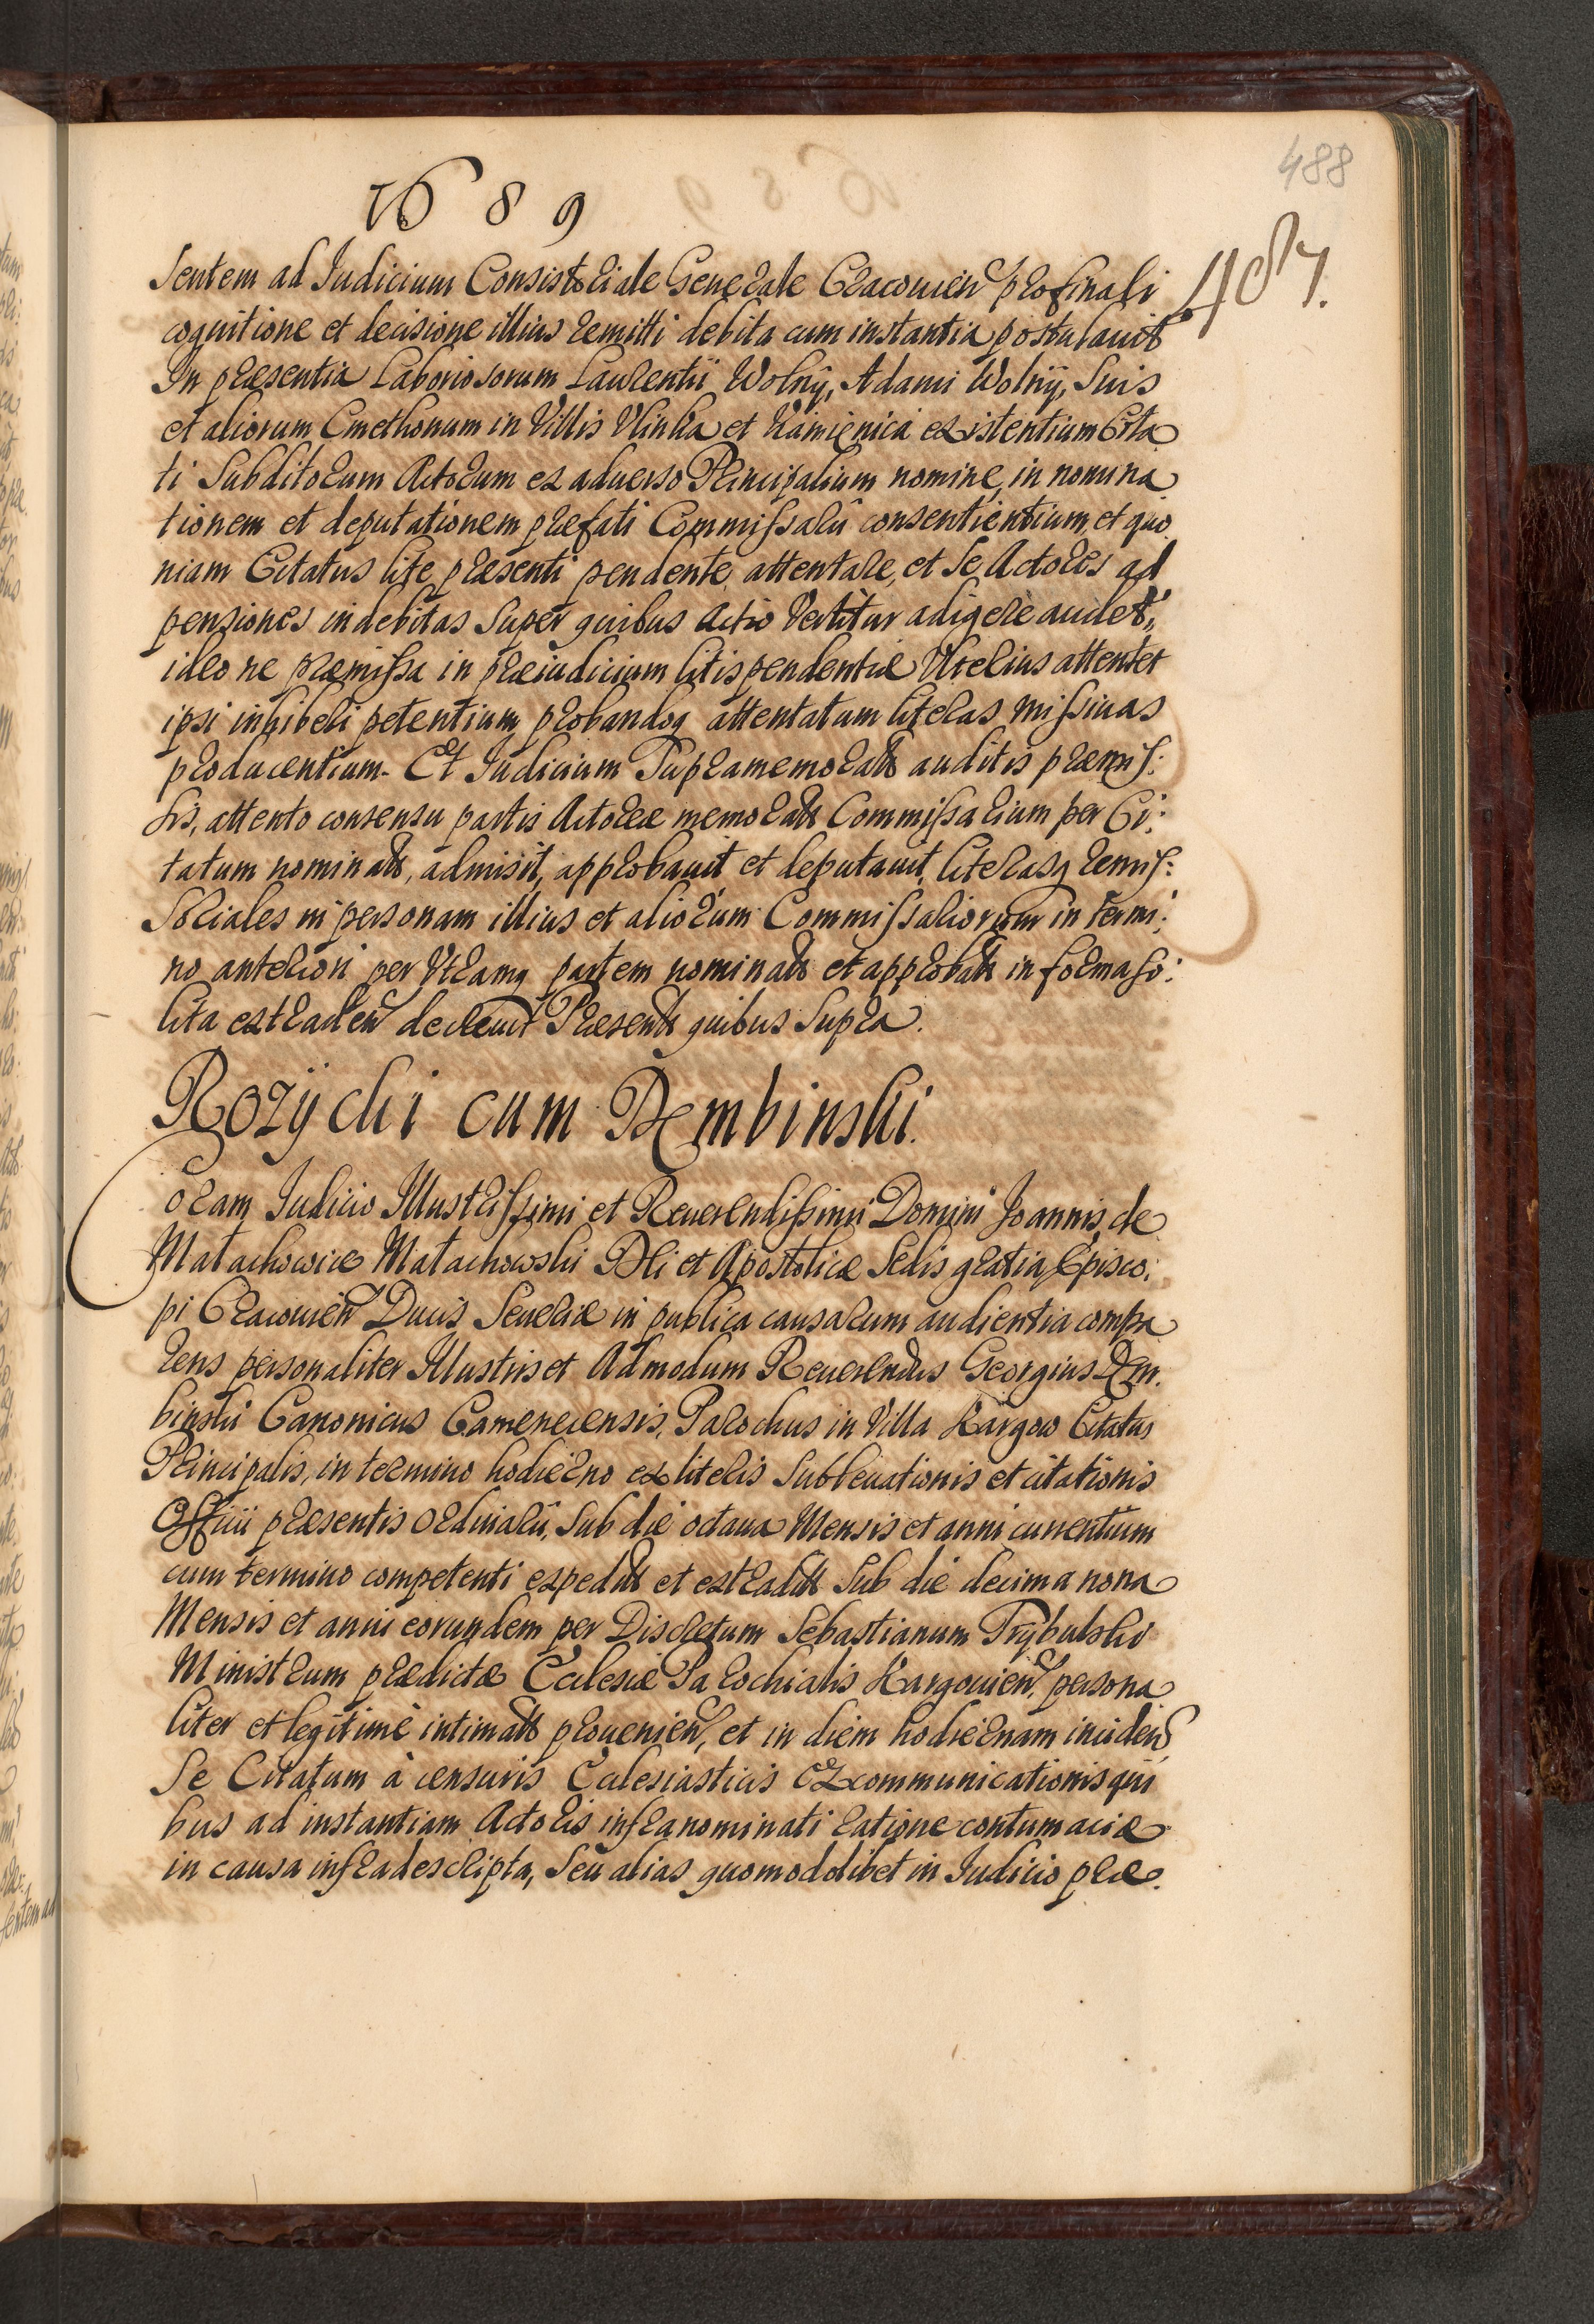 488
1689
487.
sentem ad Iudicium Consistoriale Generale Cracouien pro finali
cognitione et decisione illius remitti debita cum instantia postulauit
In præsentia Laboriosorum Laurentii Wolnÿ, Adami Wolnÿ, Suis
et aliorum Cmethonum in Villis Vlinka et Kamięnica existentium Cita
ti Subditorum Actorum ex aduerso Principalium nomine, in nomina
tionem et deputationem præfati Commissarii consentientium, et quo
niam Citatus lite præsenti pendente attentare, et se Actores ad
pensiones indebitas super quibus Actio Vertitur adigere audet,
ideo ne præmissa in præiudicium litispendentiæ Vlterius attentet
ipsi inhiberi petentium, probandoq attentatum literas missiuas
producentium. Et Iudicium Supramemorat auditis præmis:
sis, attento consensu partis Actoreæ memorat Commissarium per Ci:
tatum nominat, admisit, approbauit et deputauit, literasq remis:
soriales in personam illius et aliorum Commissariorum in termi:
no anteriori per Vtramq partem nominat et approbat in forma so:
lita extraden decreuit Præsent quibus Supra.
Rozÿcki cum Dembinski.
Coram Iudicio Illustrissimi et Reuerendissimi Domini Joannis de
Małachowice Małachowski Dei et Apostolicæ Sedis gratia Episco:
pi Cracouien Ducis Seueriæ in publica causarum audientia compa
rens personaliter Illustris et Admodum Reuerendus Georgius Dem:
binski Canonicus Camenecensis, Parochus in Villa Kargow Citatus
Principalis, in termino hodierno ex literis Subleuationis et citationis
Officii præsentis Ordinarii, Sub die octaua Mensis et anni currentium
cum termino competenti expedit et extradit Sub die decima nona
Mensis et anni eorundem per Discretum Sebastianum Trÿbulski
Ministrum prædictæ Ecclesiæ Parochialis Kargouien, persona
liter et legitimè intimat prouenien, et in diem hodiernam inciden
Se Citatum à censuris Ecclesiasticis Excommunicationis qui
bus ad instantiam Actoris infranominati ratione contumaciæ
in causa infradescripta, Seu alias quomodolibet in Iudicio præ.